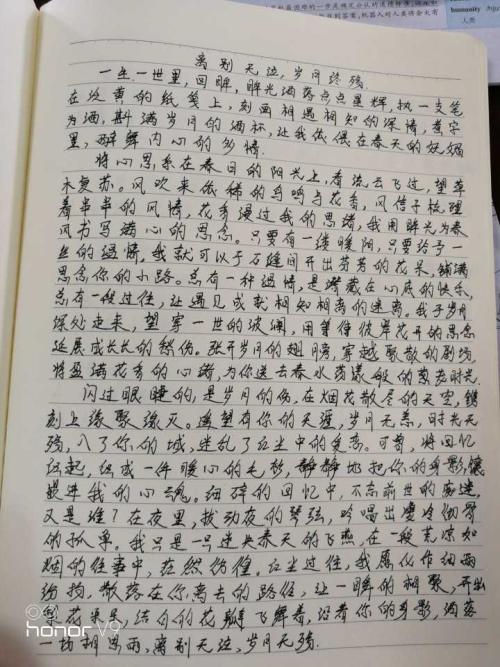 humanity
人类
离别无泣，岁月终残。
一生一世里，回眸，眸光洒落点点星辉，执一支笔
在泛黄的纸笺上，刻画相遇相知的深情，煮字
为酒，斟满岁月的酒杯，让我依偎在春天的妩媚
里，醉解内心的多情。
将心思系在春日的阳光上，看流云飞过，望草
木复苏。风吹来依稀的鸟鸣与花香，风信子梳理
着串串的风情，花香漫过我的思绪，我用眸光为春
风书写满心的思念。只要有一缕暖阳，只要给予一
丝的温情，我就可以于石缝间开出芬芳的花朵，铺满
思念你的小路。总有一种温情，是潜藏在心底的快乐，
总有一段过往，让遇见成就相知相离的迷离。我于岁月
深处走来，望穿一世的波澜，用等待彼岸花开的思念
延展成长长的忧伤。张开岁月的翅膀，穿越聚散的剧终
将盈满花香的心绪，为你送去春水荡漾般的葱茏时光。
闪过眼睫的，是岁月的伤，在烟花散尽的天空，镌
刻上缘聚缘灭。遥望有你的天涯，岁月无恙，时光无
残，入了你的城，迷乱了红尘中的爱恋。可曾，将回忆
结起，织成一件暖心的毛衫，静静地把你的身影镶
嵌进我的心魂。细碎的回忆中，不忘前世的邂逅，
又是谁？在夜里，拨动夜的琴弦，吟唱出凄冷彻骨
的孤单。我只是一只迷失春天的飞燕，在一段荒凉如
烟的往事中，茫然彷徨。红尘过往，我愿化作细雨
纷扬，散落在你离去的路径，让一瞬的相聚，开出
梨花
结伴的花瓣飞舞着，沿着你的身影，洒落
一场相思雨，离别无泣，岁月无残。
honor V9